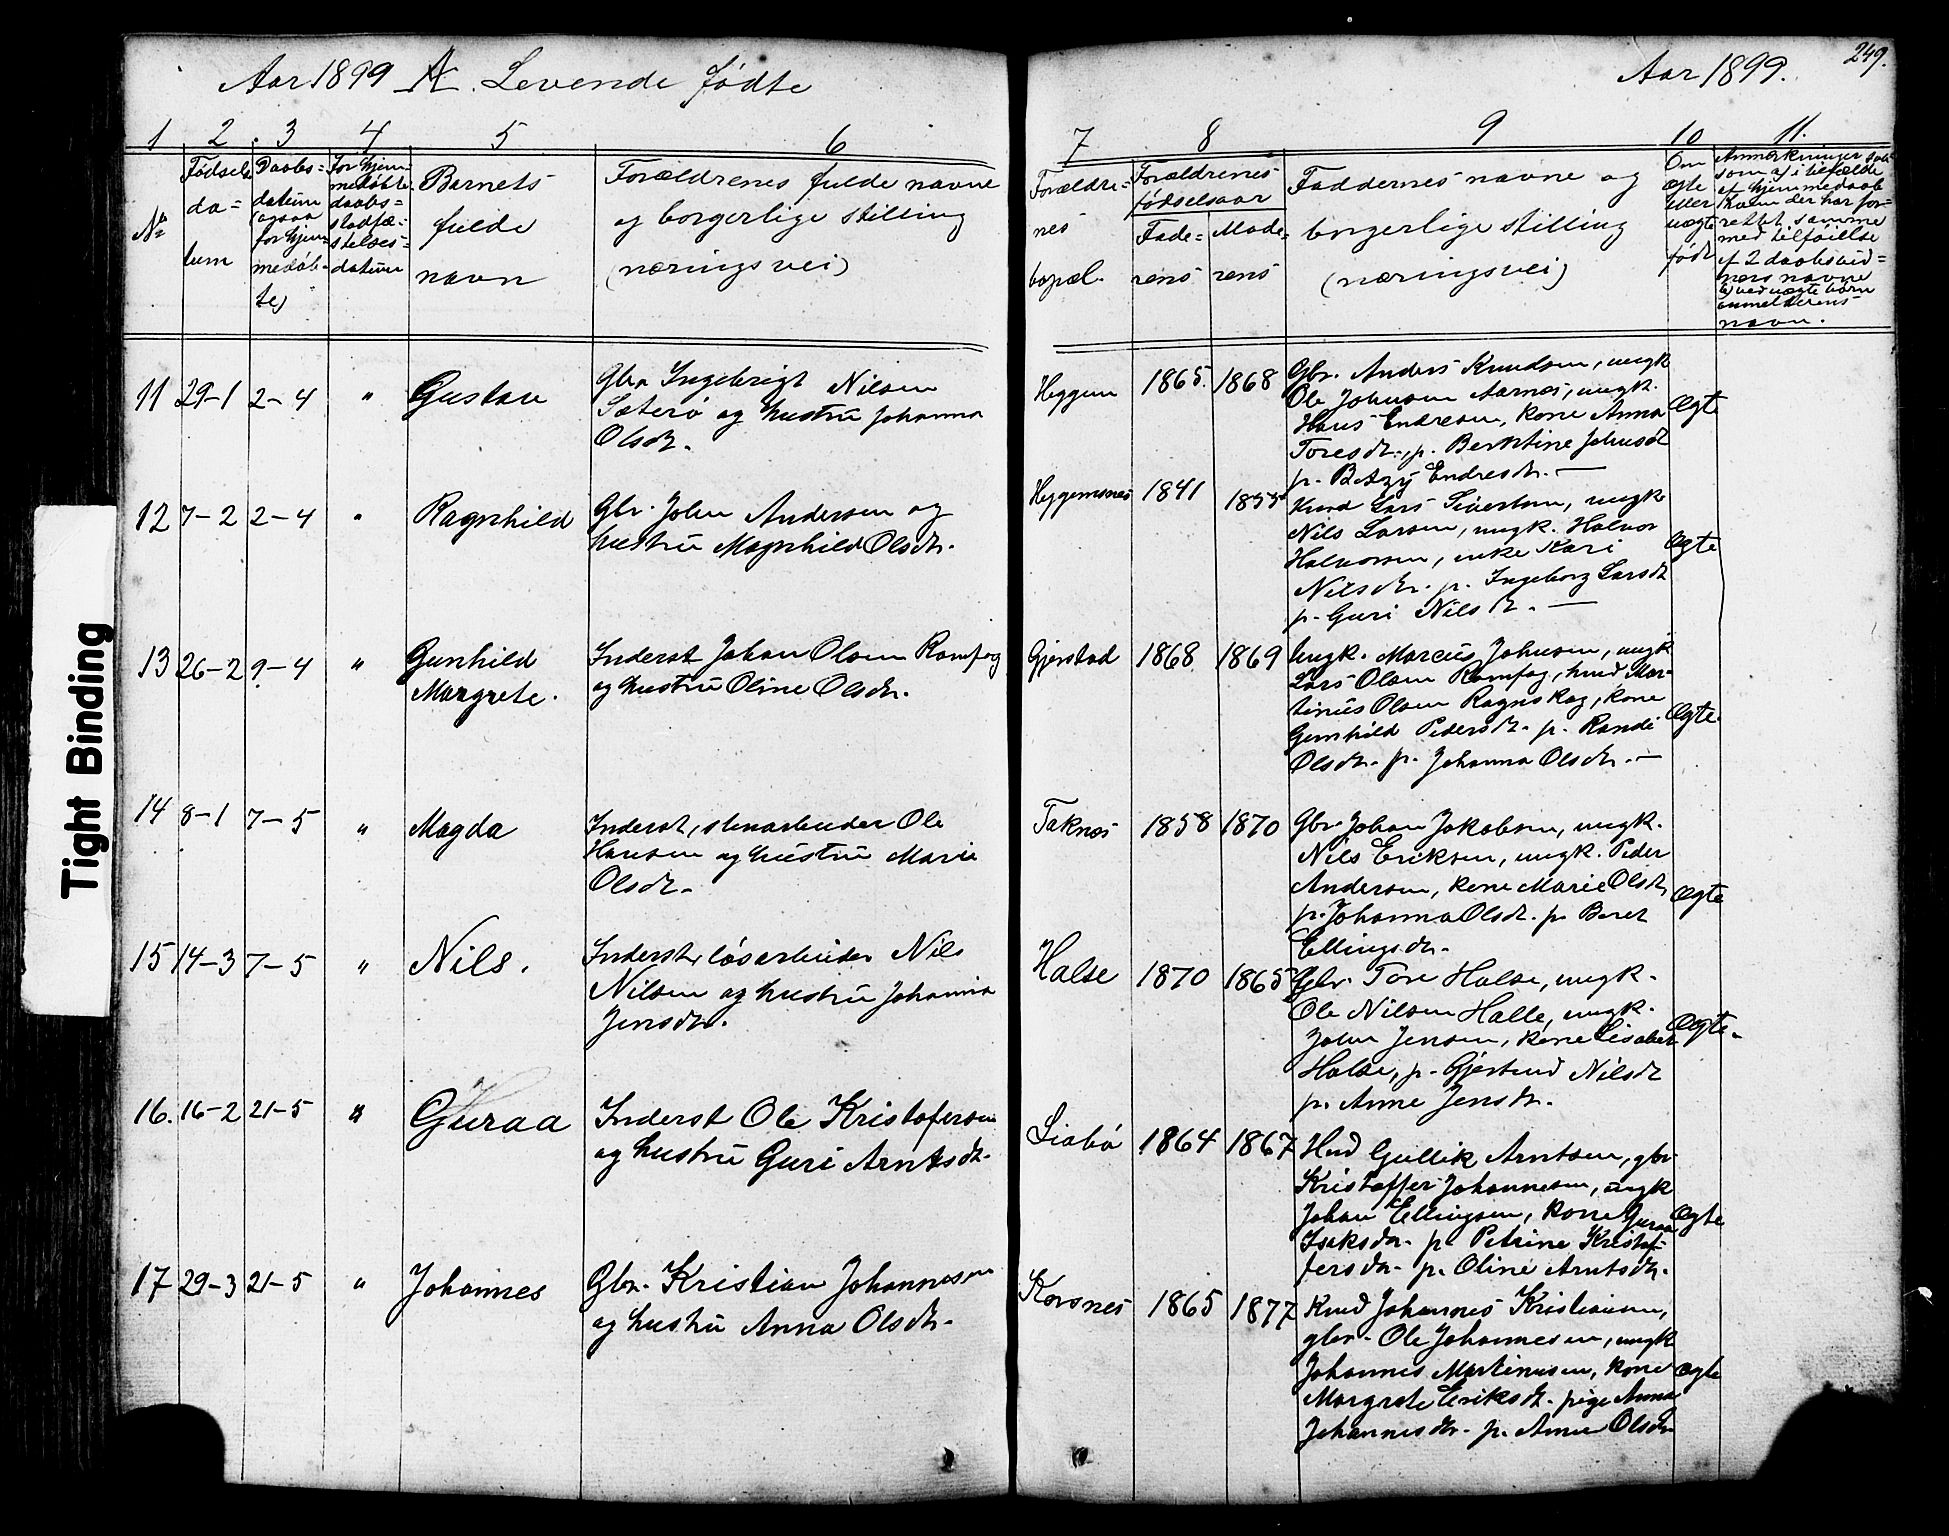 Aar 1899 A. Levende fødte
Aar 1899.
249.
1 2. 3 4 5 6
7 8 9 10 11.
No
Fødsels
da=
tum
Daabs=
datum
(ogsaa
for hjem
medøb-
te)
For hjem-
medøbte
daabs=
stadfæ-
stelses=
datum
Barnets
fulde
navn
Forældrenes fulde navne
og borgerlige stilling
(næringsvei)
Forældre=
nes
bopæl.
Forældrenes
fødselsaar
Fade=
rens
Mode=
rens
Faddernes navne og
borgerlige stilling
(næringsvei)
Om
ægte
eller
uægte
født
Anmærkninger saa
som a) i tilfælde
af hjemmedaab
hvem der har for-
rettet samme
med tilføielse
af 2 daabsvid=
ners navne
b) ved uægte børn
anmelderens
navn.
11 29-1 2-4 " Gustav
Gbr. Ingebrigt Nilsen
Sæterø og hustru Johanna
Olsdtr.
Heggem 1865. 1868
Gbr. Anders Knudsen, ungk
Ole Johnsen Aarnes, ungk.
Hans Endresen, kone Anna
Toresdtr., p. Berntine Johnsdt
p. Betzy Endresdtr. —
Ægte
12 7-2 2-4 " Ragnhild
Gbr. John Andersen og
hustru Magnhild Olsdtr.
Heggemsnes 1841 1855
Huud Lars Sivertsen, ungk
Nils Larsen, ungk. Halvor
Halvorsen, enke Kari
Nilsdtr. p. Ingeborg Larsdt
p. Guri Nilsdt. —
Ægte
13 26-2 9-4 " Gunhild
Margrete.
Inderst Johan Olsen Ramfog
og hustru Oline Olsdtr.
Gjerstad 1868 1869
Ungk. Marcus Johnsen, ungk
Lars Olsen Ramfog, huud Mar-
tinus Olsen Ragnskog, kone
Gunhild Pedersdtr. p. Randi
Olsdtr. p. Johanna Olsdtr. —
Ægte.
14 8-1 7-5 " Magda
Inderst, stenarbeider Ole
Hansen og hustru Marie
Olsdtr.
Taknes 1858 1870
Gbr. Johan Jakobsen, ungk.
Nils Eriksen, ungk. Peder
Andersen, kone Marie Olsdt,
p. Johanna Olsdt. p. Beret
Ellingsdtr.
Ægte
15 14-3 7-5 " Nils.
Inderst, løsarbeider Nils
Nilsen og hustru Johanna
Jensdtr.
Halse 1870 1865
Gbr. Tore Halse, ungk.
Ole Nilsen Halle, ungk.
John Jensen, kone Lisabet
Halse, p. Gjertrud Nilsdt
p. Anne Jensdtr.
Ægte.
16. 16-2 21-5 " Guraa
Inderst Ole Kristofersen
og hustru Guri Arntsdtr.
Liabø 1864 1867
Hud Gullik Arntsen, gbr
Kristoffer Johannesen, ungk
Johan Ellingsen, kone Guraa
Isaksdtr. p. Petrine Kristof-
fersdtr. p. Oline Arntsdtr.
Ægte
17 29-3 21-5 " Johannes
Gbr. Kristian Johannesen
og hustru Anna Olsdtr.
Korsnes 1865 1877
Knud Johannes Kristiansen,
gbr. Ole Johannesen, ungk
Johannes Martinusen, kone
Margrete Eriksdt. pige Anna
Johannesdtr. p. Anne Olsdtr
Ægte
Tight Binding